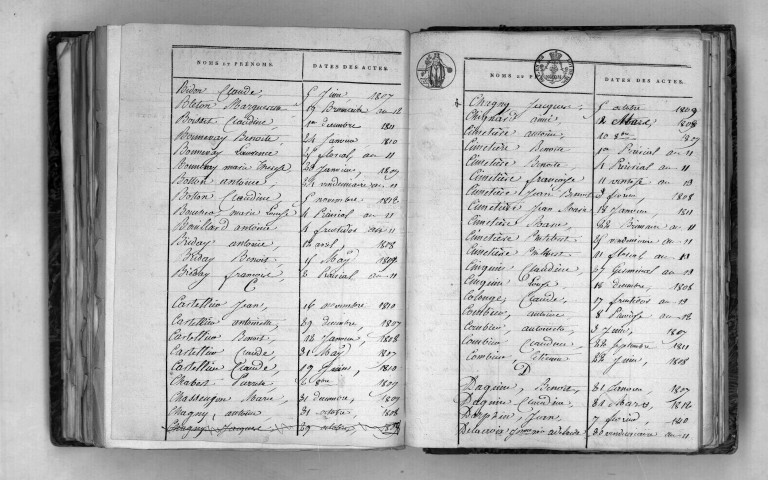 NOMS ET PRÉNOMS. DATES DES ACTES.
Bidon Claude, 5 Juin 1807
Bleton Marguerite 19 Brumaire an 12
Bosset Claudine 1er décembre 1811
Bonnevay Benoite, 24 Janvier 1810
Bonnevay Laurence floréal an 11
marie Joseph 28 Janvier, 1807
Botton antoine, vendemiaire an 11
Boton Claudine 5 novembre 1812
marie 4 Prairial an 11
Bouillard antoine 4 fructidor an 11
Briday antoine, 12 avril, 1808
Briday Benoit, 15 May
Briday françois, 8 Prairial an 11
C
Castellin Jean, 16 novembre 1810
Castellin antoinette, 29 décembre, 1807
Castellin Benoit, 12 Janvier, 1808
Castellin Claude, 31 May 1807
Castellin Claude, 19 Juin, 1810
Chabert 6 8bre 1807
Chassengon Marie, 31 décembre, 1807
Chagny, antoine 31 octobre, 1808
Chagny Jacques 29 octobre
NOMS ET DATES DES ACTES.
Chagny Jacques, 5 octobre 1809
aimé 12 Mars, 1808
Cimetière antoine, 10 8bre 1807
Cimetière Benoite 1er Prairial an 11
Cimetière Benoite 4 Prairial an 11
Cimetière françoise 11 ventose an 13
Cimetière Jean Benoit 3 février, 1808
Cimetière Jean Marie 18 Janvier, 1811
Cimetière Marie, 22 Brumaire an 11
Cimetière Philibert 25 vendemiaire an 11
Cimetière Philibert 11 floréal an 13
Cinquin Claudine 27 Germinal an 13
Cinquin 16 décembre, 1808
Colonge, Claude, 17 fructidor an 13
Combier, antoine 8 Pluviose an 12
Combier, antoinette 3 Juin, 1807
Combier Claudine, 22 Septembre 1811
Combier Etienne 28 Juin, 1808
D
Daguin, Benoit, 31 Janvier, 1807
Daguin Claudine 31 Mars, 1812
Dauphin Jean, 7 février, 1810
Delacroix adelaide 30 vendemiaire an 11